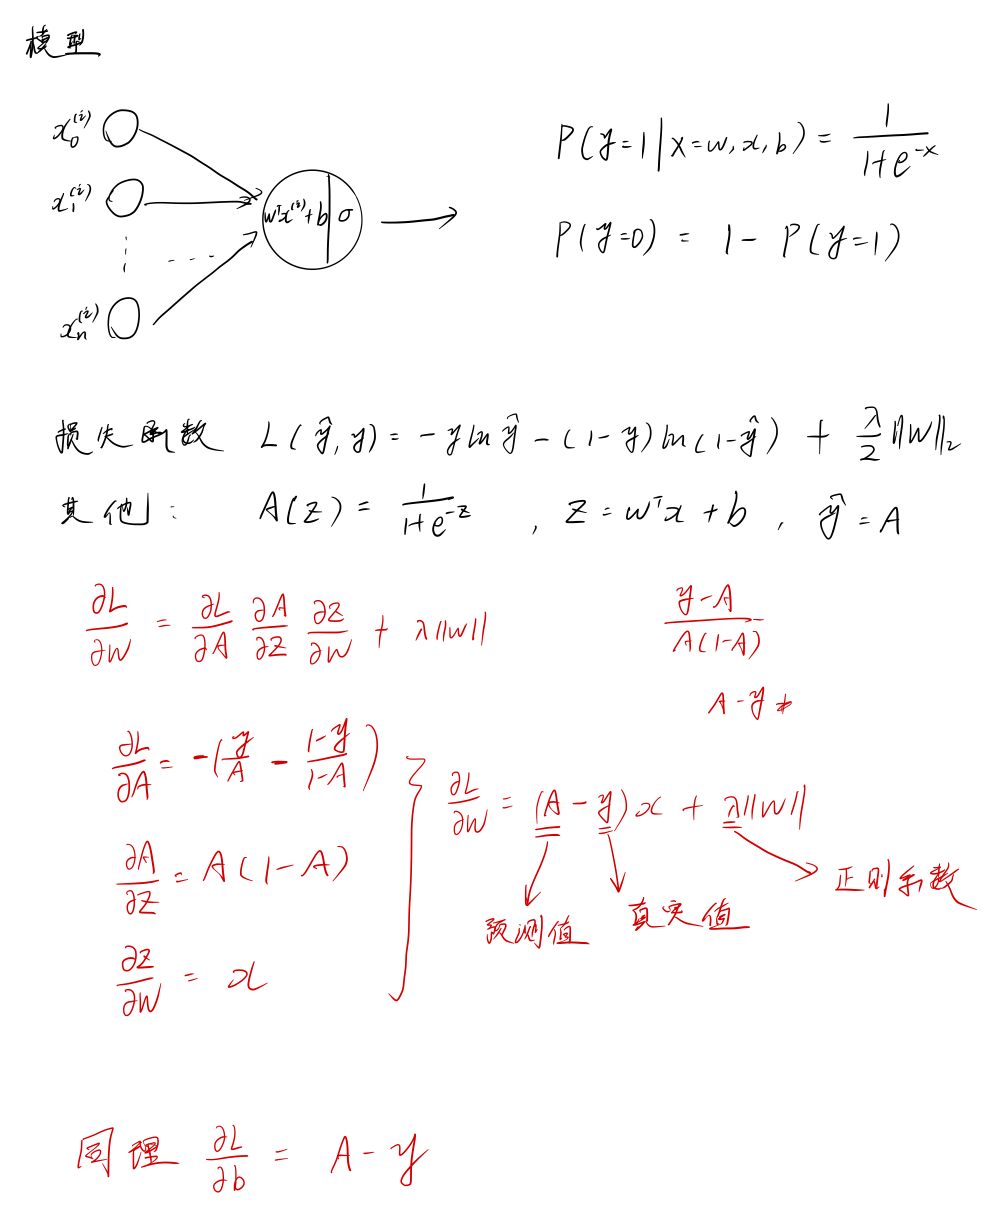 模型
x₀⁽ⁱ⁾
x₁⁽ⁱ⁾
xₙ⁽ⁱ⁾
wᵀx⁽ⁱ⁾+b | σ
P(y=1|x=w,x,b) = 1/(1+e^-x)
P(y=0) = 1 - P(y=1)
损失函数 L(ŷ,y) = -y ln ŷ - (1-y) ln(1-ŷ) + λ/2 ||W||₂
其他: A(z) = 1/(1+e^-z) , z = wᵀx + b , ŷ = A
∂L/∂W = ∂L/∂A ∂A/∂Z ∂Z/∂W + λ||W||
(y-A)/(A(1-A))
A-y
∂L/∂A = -(y/A - (1-y)/(1-A))
∂A/∂Z = A(1-A)
∂Z/∂W = x
∂L/∂W = (A-y)x + λ||W||
预测值
真实值
正则系数
同理 ∂L/∂b = A-y